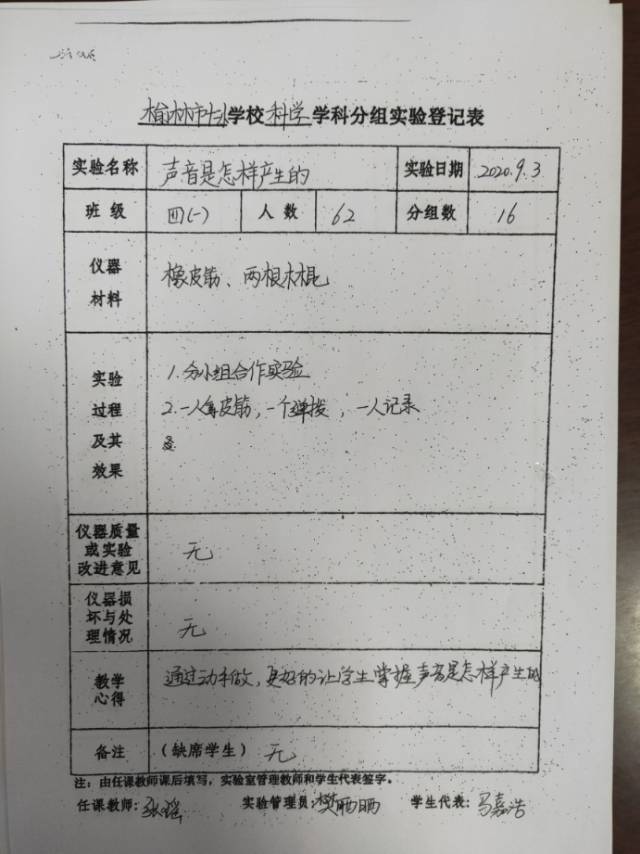 榆林市十小学校科学学科分组实验登记表
实验名称 声音是怎样产生的 实验日期 2020.9.3
班级 四(一) 人数 62 分组数 16
仪器材料 橡皮筋、两根木棍
实验过程及其效果 1.分小组合作实验
2.一人拿皮筋,一个弹拨,一人记录
仪器质量或实验改进意见 无
仪器损坏与处理情况 无
教学心得 通过动手做,更好的让学生掌握声音是怎样产生的
备注 (缺席学生) 无
注:由任课教师课后填写,实验室管理教师和学生代表签字。
任课教师:张瑶 实验管理员:樊晒晒 学生代表:马嘉浩